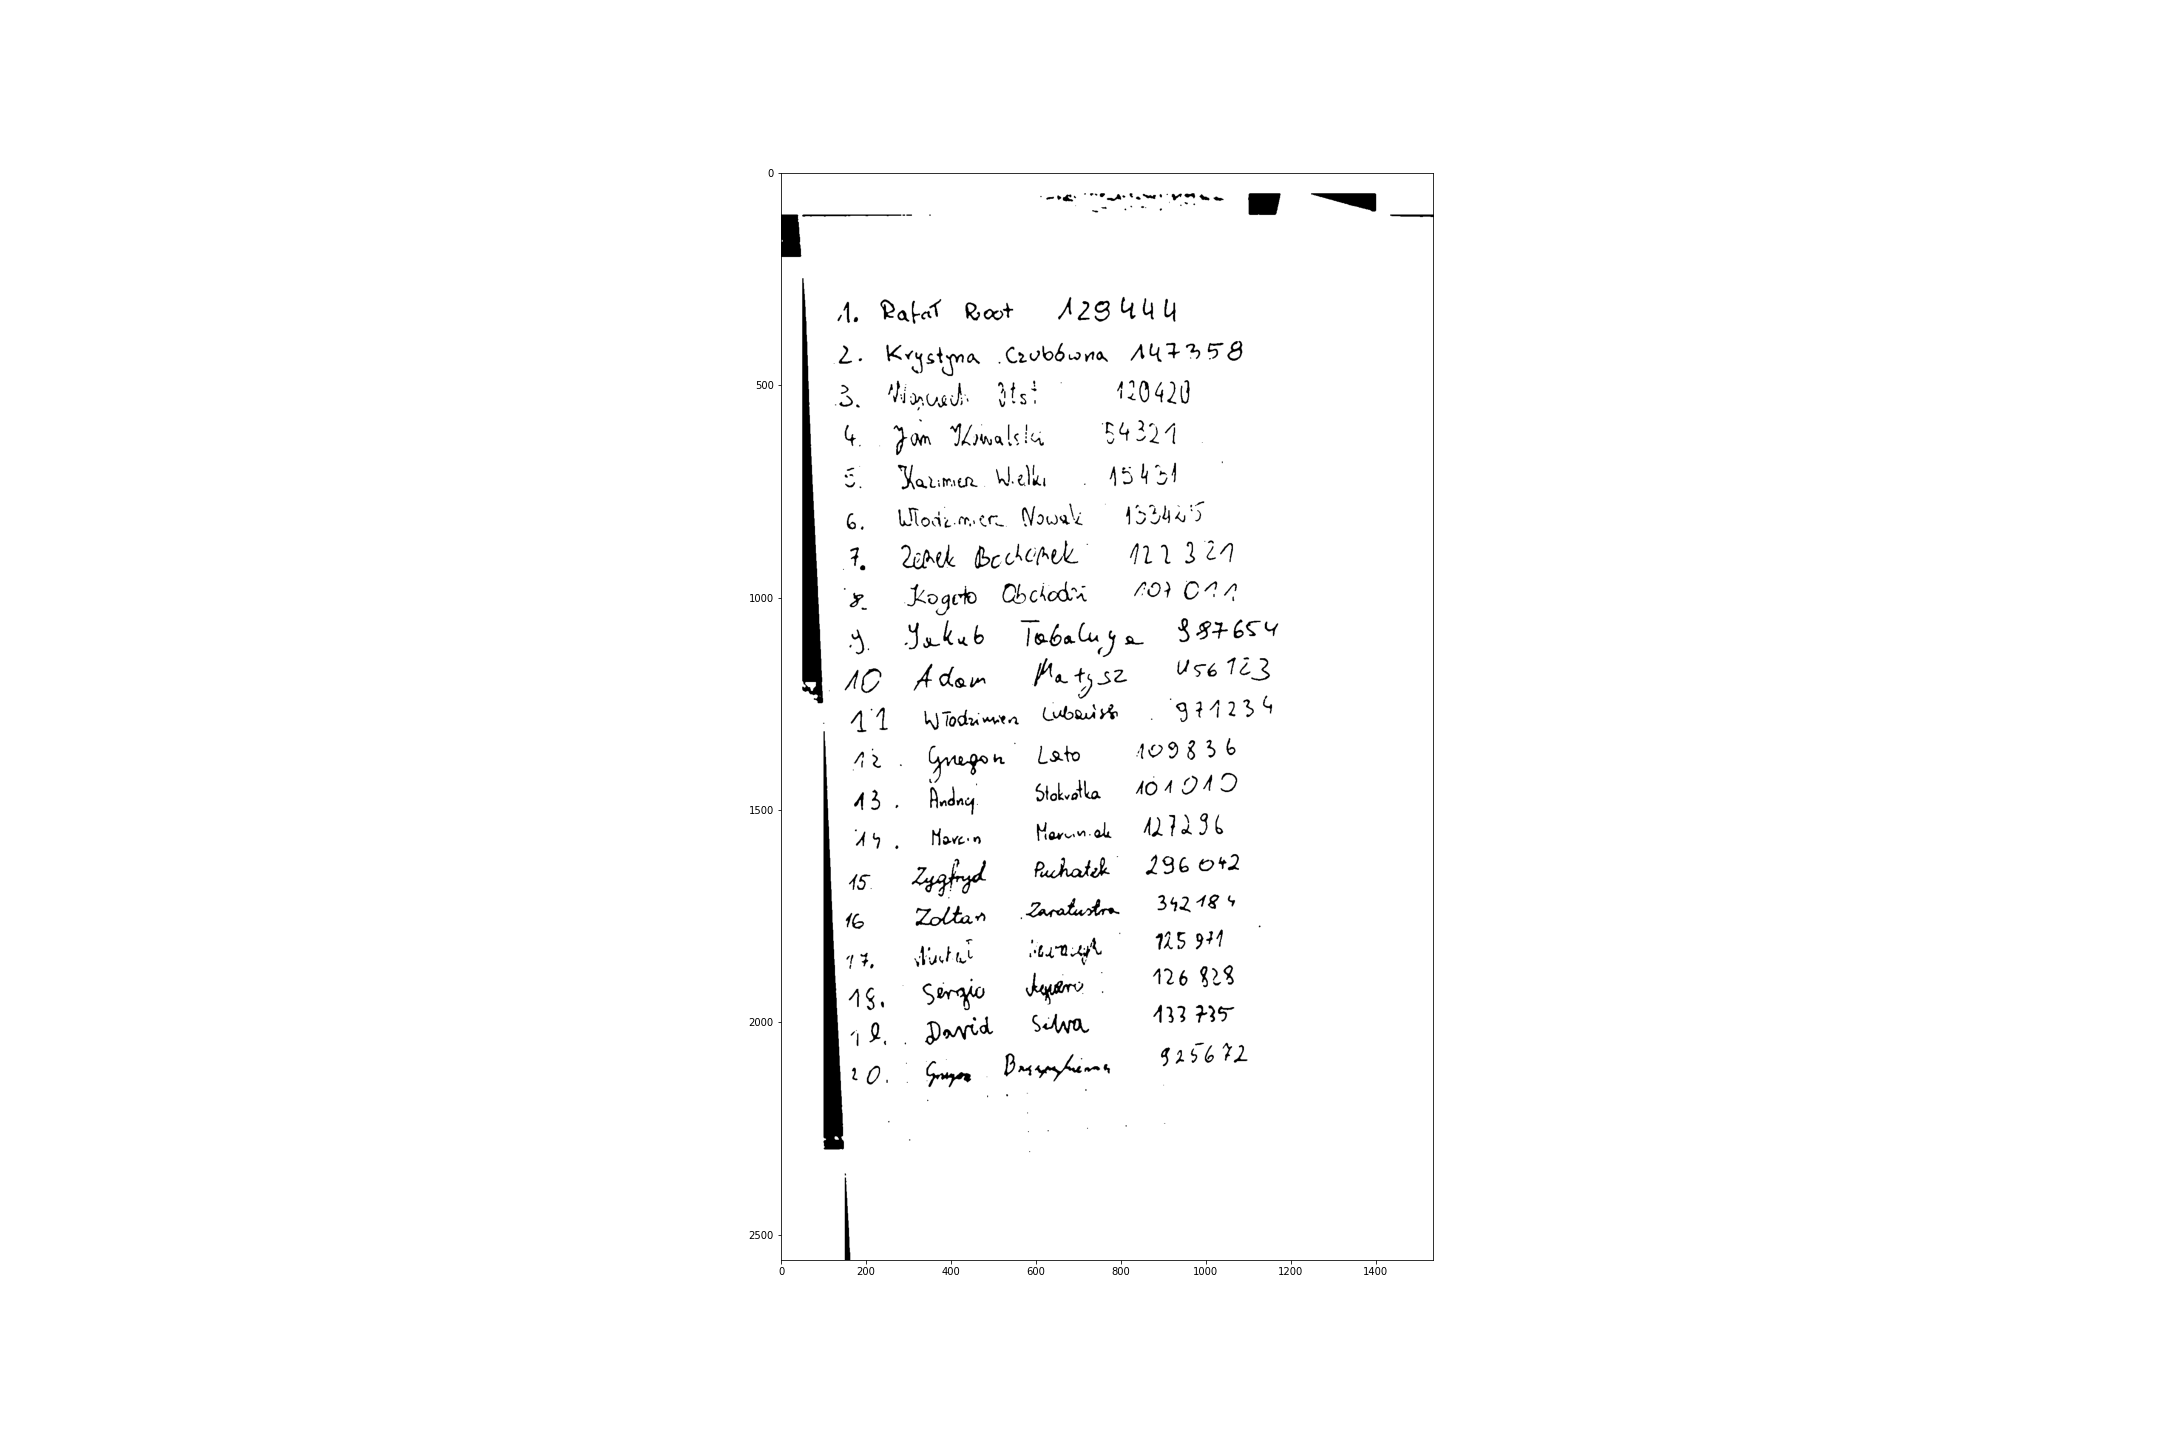 0
500
1000
1500
2000
2500
1. Rafał Root 129444
2. Krystyna Czubówna 147358
3. 120420
4. Jan Kowalski 54321
5. Kazimierz Wielki 15431
6. Włodzimierz Nowak 133425
7. Zenek Bochenek 122321
8. Kogoto Obchodzi 107011
9. Jakub Tabaluga 987654
10 Adam Matysz 456123
11 Włodzimierz 971234
12. Grzegorz Lato 109836
13. Andrzej Stokrotka 101010
14. Marcin Marciniak 127296
15. Zygfryd Puchatek 296042
16 Zoltan Zaratustra 342184
17. 125971
18. Sergio Aguero 126828
19. David Silva 133735
20. Grzegorz 925672
0 200 400 600 800 1000 1200 1400